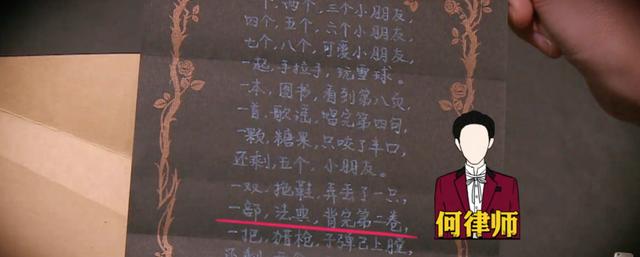 个，两个，三个小朋友，
四个，五个，六个小朋友，
七个，八个，可爱小朋友，
一起，手拉手，玩雪球。
一本，图书，看到第八页，
一首，歌谣，唱完第四句，
一颗，糖果，只咬了半口，
还剩，五个，小朋友。
一双，拖鞋，弄丢了一只，
一部，法典，背完第二卷，
一把，猎枪，子弹已上膛，
还剩
何律师